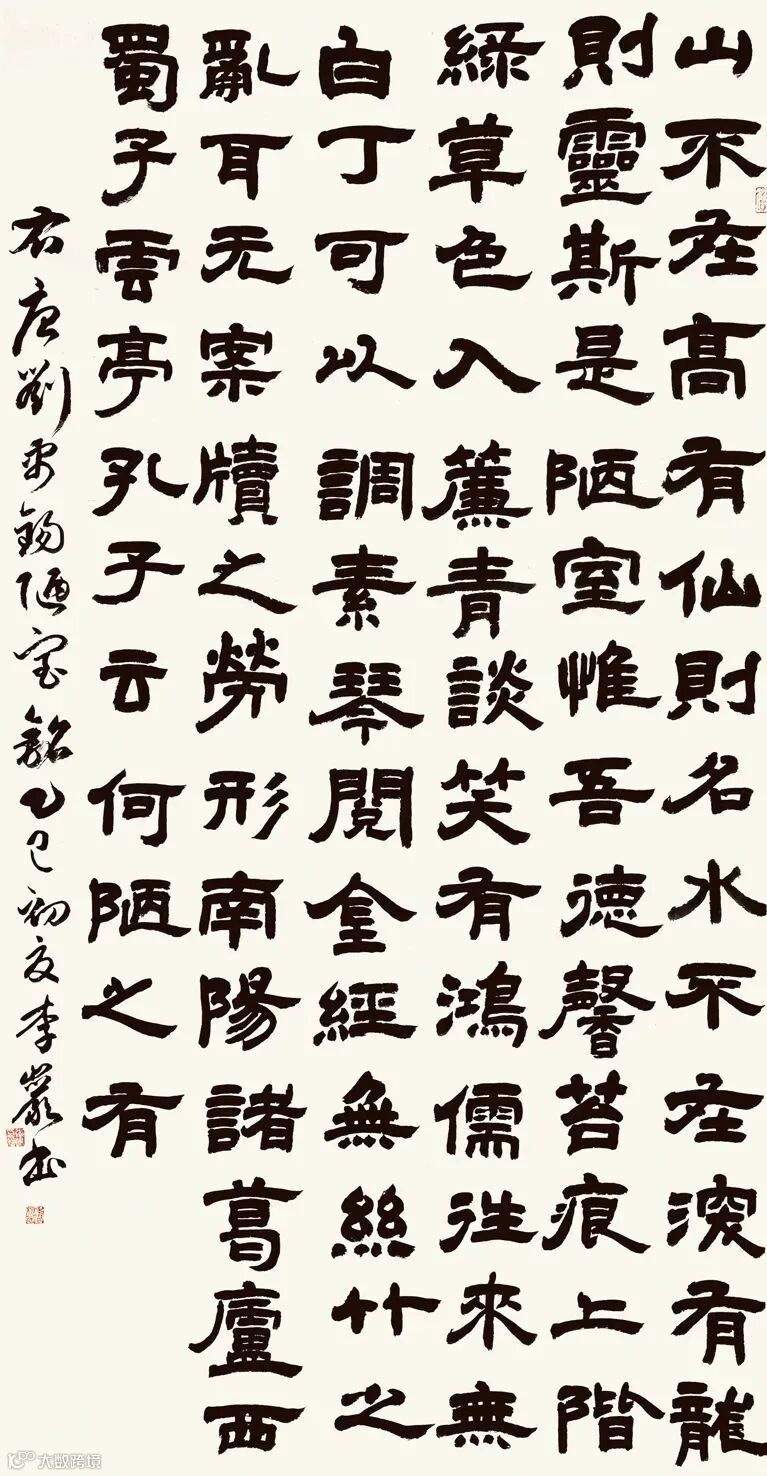 山不在高有仙則名水不在深有龍
則靈斯是陋室惟吾德馨苔痕上階
綠草色入簾青談笑有鴻儒往來無
白丁可以調素琴閱金經無絲竹之
亂耳无案牘之勞形南陽諸葛廬西
蜀子雲亭孔子云何陋之有
右唐劉禹錫陋室銘乙巳初夏李嚴书
大数跨境